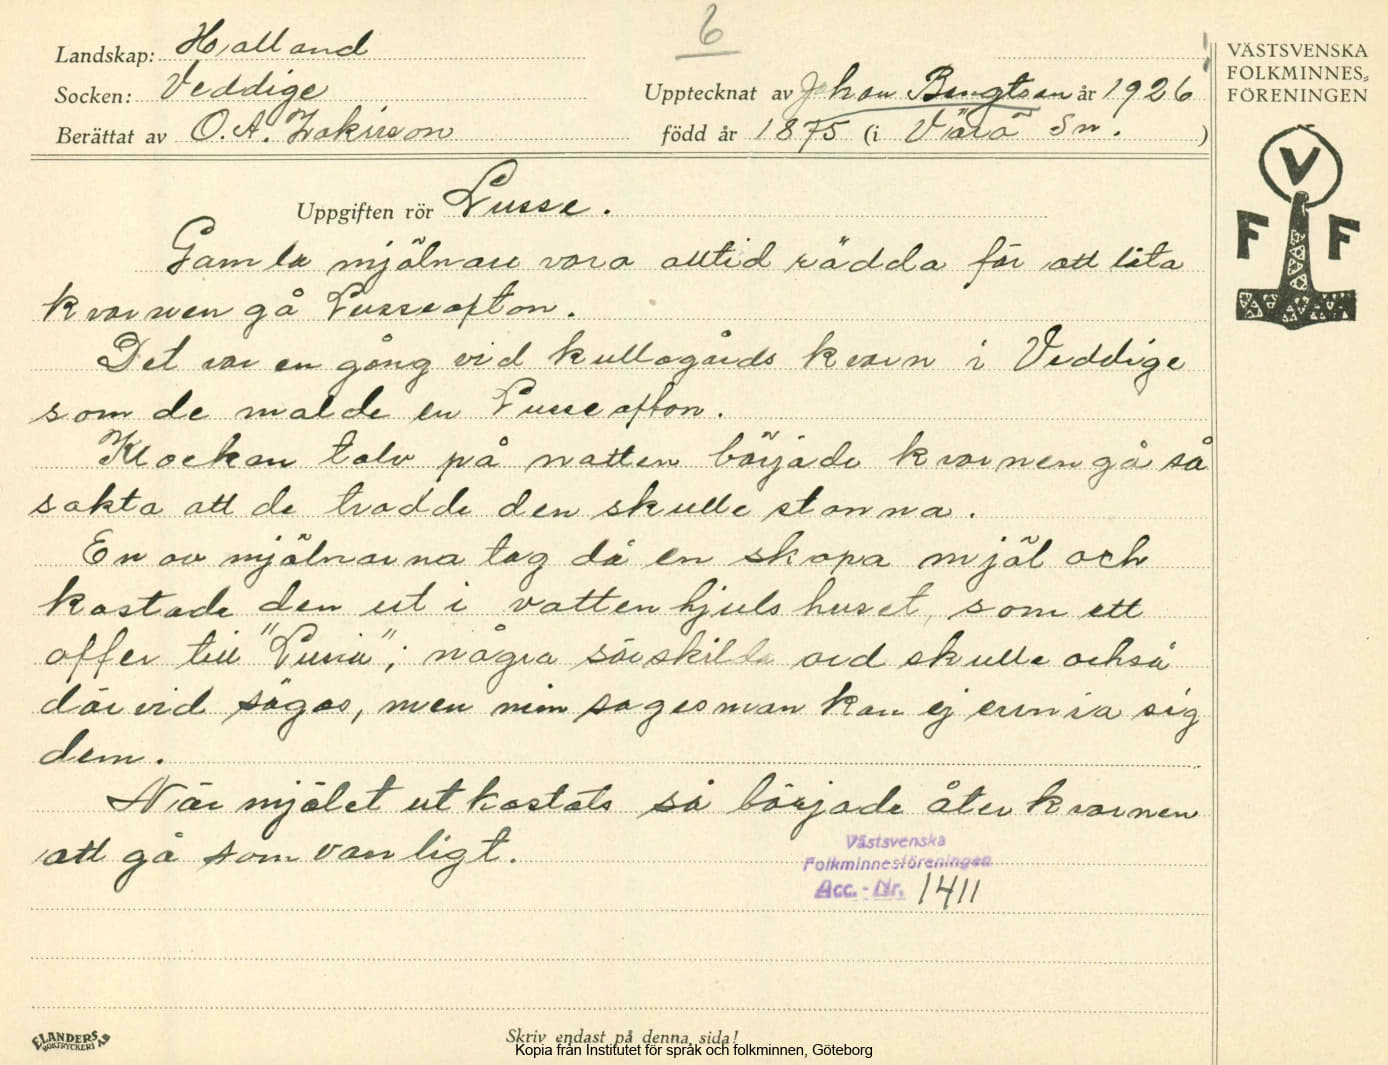 6
Landskap: Halland
Socken: Veddige
Berättat av O. A. Zakrison
Upptecknat av Johan Bengtson år 1926
född år 1875 (i Värö Sn. )
VÄSTSVENSKA
FOLKMINNES-
FÖRENINGEN
V
F F
Uppgiften rör Lusse.
Gamla mjölnare voro alltid rädda för att låta
kvarnen gå Lusseafton.
Det var en gång vid kullagårds kvarn i Veddige
som de malde en Lusseafton.
Klockan tolv på natten började kvarnen gå så
sakta att de trodde den skulle stanna.
En av mjölnarna tog då en skopa mjöl och
kastade den ut i vattenhjulshuset, som ett
offer till "Lusia"; några särskilda ord skulle också
därvid sägas, men min sagesman kan ej erinra sig
dem.
När mjölet utkastats så började åter kvarnen
att gå som vanligt.
Västsvenska
Folkminnesföreningen
Acc.-Nr. 1411
ELANDERS
BOKTRYCKERI AB
Skriv endast på denna sida!
Kopia från Institutet för språk och folkminnen, Göteborg